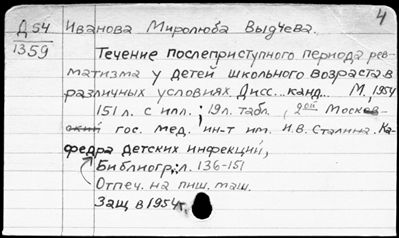 4
Д54 Иванова Миролюба Выдчева.
1359
Течение послеприступного периода рев-
матизма у детей школьного возраста в
различных условиях Дисс... канд... М, 1954
151 л. с илл. ; 19л. табл. , 2ой Москов-
ский гос. мед. ин-т им. И.В. Сталина. Ка-
федра детских инфекций,
Библиогр: л. 136-151
Отпеч. на пиш. маш.
Защ в 1954г.